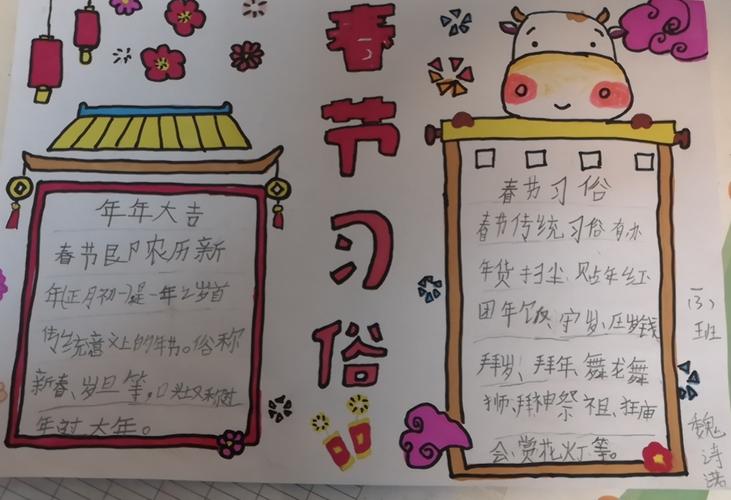 春节习俗
年年大吉
春节即农历新
年(正月初一)是一年之岁首
传统意义上的年节。俗称
新春、岁旦等,口头又称过
年过大年。
春节习俗
春节传统习俗有办
年货、扫尘、贴年红
团年饭、守岁、压岁钱
拜岁、拜年、舞龙舞
狮、拜神祭祖、逛庙
会、赏花灯等。
(3)
班
魏诗诺